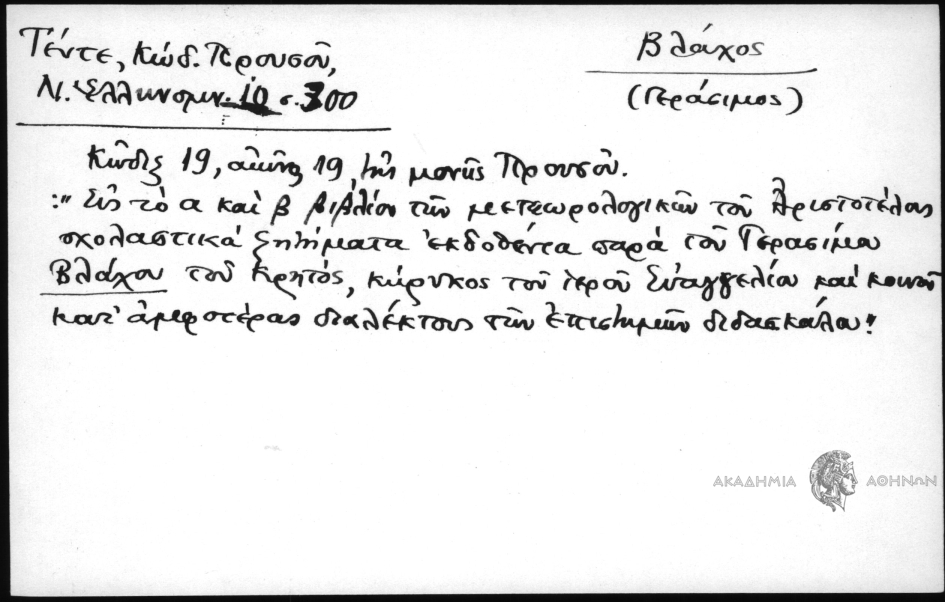 Τέντε, Κώδ. Προυσοῦ,
Ν. Ἑλληνομν. 10 σ. 300
Βλάχος
(Γεράσιμος)
Κῶδιξ 19, αἰῶνος 19, τῆς μονῆς Προυσοῦ.
:" Εἰς τὸ α καὶ β βιβλίον τῶν μετεωρολογικῶν τοῦ Ἀριστοτέλους
σχολαστικά ζητήματα ἐκδοθέντα παρὰ τοῦ Γερασίμου
Βλάχου τοῦ Κρητός, κήρυκος τοῦ ἱεροῦ Εὐαγγελίου καὶ κοινοῦ
κατ' ἀμφοτέρας διαλέκτους τῶν ἐπιστημῶν διδασκάλου"
ΑΚΑΔΗΜΙΑ ΑΘΗΝΩΝ